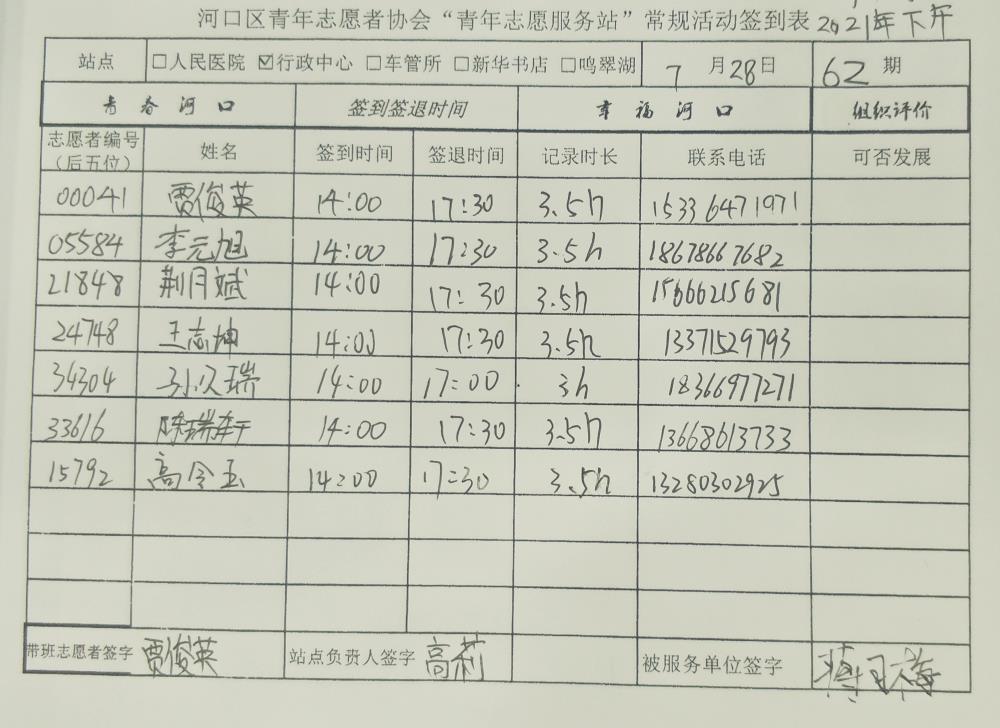 河口区青年志愿者协会“青年志愿服务站”常规活动签到表 2021年下午
站点 □人民医院 ☑行政中心 □车管所 □新华书店 □鸣翠湖 7 月28日 62 期
青春河口 签到签退时间 幸福河口 组织评价
志愿者编号（后五位） 姓名 签到时间 签退时间 记录时长 联系电话 可否发展
00041 贾俊英 14:00 17:30 3.5h 15336471971
05584 李元旭 14:00 17:30 3.5h 18678667682
21848 荆月斌 14:00 17:30 3.5h 15666215681
24748 王志坤 14:00 17:30 3.5h 13371529793
34304 孙久瑞 14:00 17:00 3h 18366977271
33616 陈瑞轩 14:00 17:30 3.5h 13668613733
15792 高令玉 14:00 17:30 3.5h 13280302925
带班志愿者签字 贾俊英 站点负责人签字 高莉 被服务单位签字